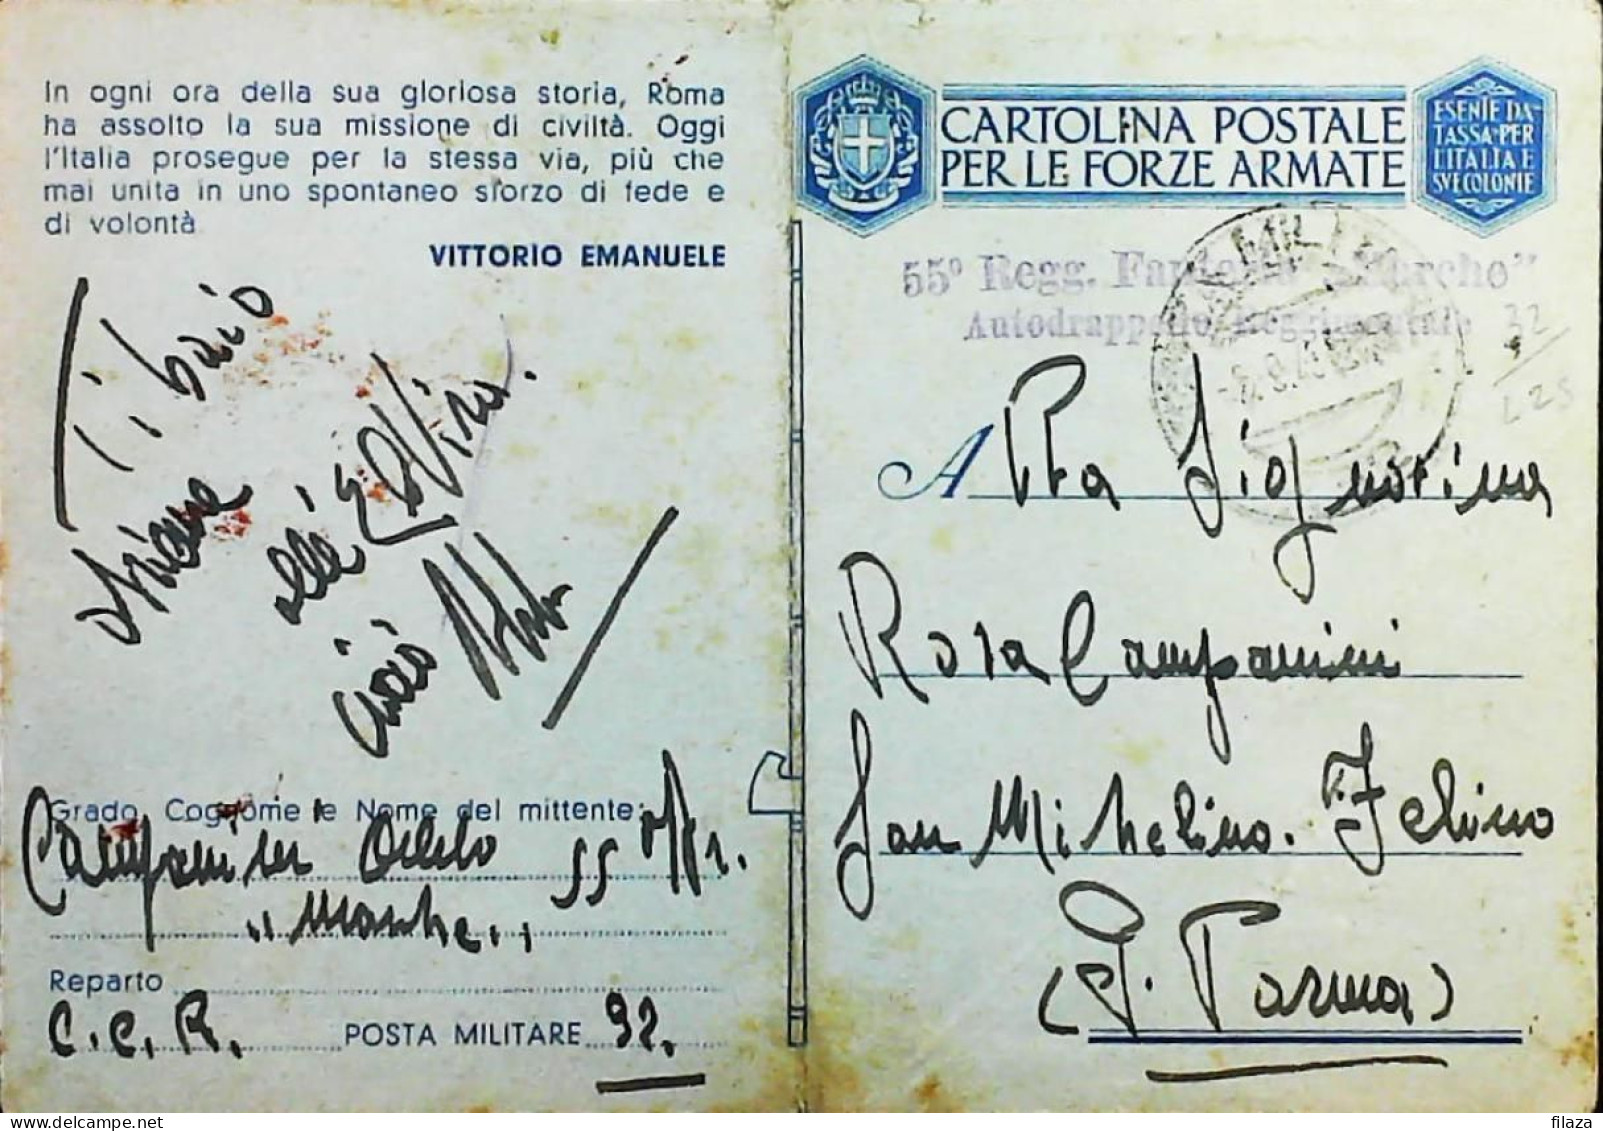 In ogni ora della sua gloriosa storia, Roma
ha assolto la sua missione di civiltà. Oggi
l'Italia prosegue per la stessa via, più che
mai unita in uno spontaneo sforzo di fede e
di volontà
VITTORIO EMANUELE
Ti bacio
alla
ciao
Grado, Cognome e Nome del mittente:
55
"Marche"
Reparto
C.C.R. POSTA MILITARE 92.
CARTOLINA POSTALE
PER LE FORZE ARMATE
ESENTE DA
TASSA PER
L'ITALIA E
SVE COLONIE
55° Regg. Fanteria "Marche"
Autodrappello Reggimentale
32
A Signorina
Rosa Campanini
San Michelino. Felino
(P. Parma)
filaza